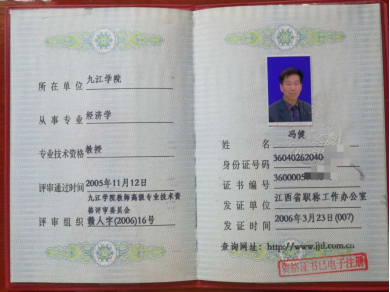 所在单位 九江学院
从事专业 经济学
专业技术资格 教授
评审通过时间 2005年11月12日
九江学院教师高级专业技术资
格评审委员会
评审组织 赣人字(2006)16号
姓名 冯健
身份证号码 36040262040
证书编号 3600005
发证单位 江西省职称工作办公室
发证时间 2006年3月23日(007)
查询网址:http://www.jjtl.com.cn
证书已电子注册